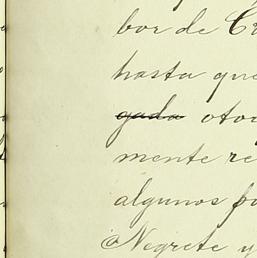 bor de Cr
hasta que
gada otor
mente re
algunos pu
Negrete y